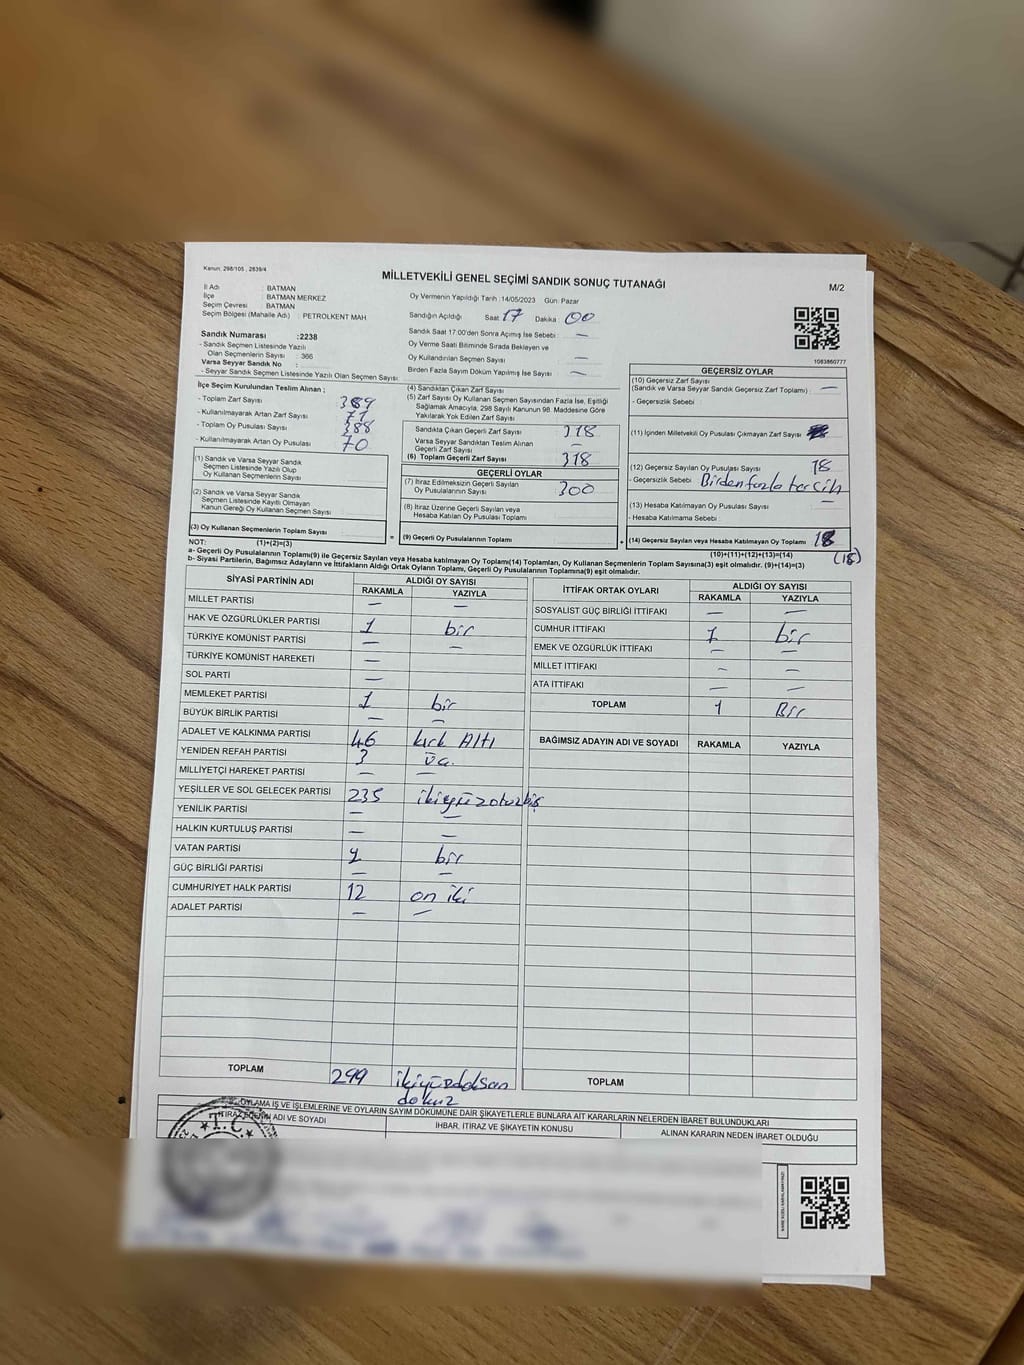 Kanun: 298/105 , 2839/4
MİLLETVEKİLİ GENEL SEÇİMİ SANDIK SONUÇ TUTANAĞI
M/2
İl Adı : BATMAN
İlçe : BATMAN MERKEZ
Seçim Çevresi : BATMAN
Seçim Bölgesi (Mahalle Adı) : PETROLKENT MAH
Oy Vermenin Yapıldığı Tarih :14/05/2023 Gün: Pazar
Sandığın Açıldığı Saat 17 Dakika : 00
Sandık Saat 17:00'den Sonra Açılmış İse Sebebi : —
Oy Verme Saati Bitiminde Sırada Bekleyen ve
Oy Kullandırılan Seçmen Sayısı —
Birden Fazla Sayım Döküm Yapılmış İse Sayısı —
1083860777
Sandık Numarası :2238
- Sandık Seçmen Listesinde Yazılı
Olan Seçmenlerin Sayısı : 366
Varsa Seyyar Sandık No :
- Seyyar Sandık Seçmen Listesinde Yazılı Olan Seçmen Sayısı
İlçe Seçim Kurulundan Teslim Alınan ;
- Toplam Zarf Sayısı 389
- Kullanılmayarak Artan Zarf Sayısı 71
- Toplam Oy Pusulası Sayısı 388
- Kullanılmayarak Artan Oy Pusulası 70
(1) Sandık ve Varsa Seyyar Sandık
Seçmen Listesinde Yazılı Olup
Oy Kullanan Seçmenlerin Sayısı
(2) Sandık ve Varsa Seyyar Sandık
Seçmen Listesinde Kayıtlı Olmayan
Kanun Gereği Oy Kullanan Seçmen Sayısı
(3) Oy Kullanan Seçmenlerin Toplam Sayısı =
(4) Sandıktan Çıkan Zarf Sayısı
(5) Zarf Sayısı Oy Kullanan Seçmen Sayısından Fazla İse, Eşitliği
Sağlamak Amacıyla, 298 Sayılı Kanunun 98. Maddesine Göre
Yakılarak Yok Edilen Zarf Sayısı
Sandıkta Çıkan Geçerli Zarf Sayısı 318
Varsa Seyyar Sandıktan Teslim Alınan
Geçerli Zarf Sayısı —
(6) Toplam Geçerli Zarf Sayısı 318
GEÇERLİ OYLAR
(7) İtiraz Edilmeksizin Geçerli Sayılan
Oy Pusulalarının Sayısı 300
(8) İtiraz Üzerine Geçerli Sayılan veya
Hesaba Katılan Oy Pusulası Toplamı
(9) Geçerli Oy Pusulalarının Toplamı +
GEÇERSİZ OYLAR
(10) Geçersiz Zarf Sayısı
(Sandık ve Varsa Seyyar Sandık Geçersiz Zarf Toplamı) —
- Geçersizlik Sebebi :
(11) İçinden Milletvekili Oy Pusulası Çıkmayan Zarf Sayısı
(12) Geçersiz Sayılan Oy Pusulası Sayısı 18
- Geçersizlik Sebebi Birden fazla tercih
(13) Hesaba Katılmayan Oy Pusulası Sayısı —
- Hesaba Katılmama Sebebi :
(14) Geçersiz Sayılan veya Hesaba Katılmayan Oy Toplamı 18
(10)+(11)+(12)+(13)=(14) (18)
NOT: (1)+(2)=(3)
a- Geçerli Oy Pusulalarının Toplamı(9) ile Geçersiz Sayılan veya Hesaba katılmayan Oy Toplam(14) Toplamları, Oy Kullanan Seçmenlerin Toplam Sayısına(3) eşit olmalıdır. (9)+(14)=(3)
b- Siyasi Partilerin, Bağımsız Adayların ve İttifakların Aldığı Ortak Oyların Toplamı, Geçerli Oy Pusulalarının Toplamına(9) eşit olmalıdır.
SİYASİ PARTİNİN ADI ALDIĞI OY SAYISI
RAKAMLA YAZIYLA
MİLLET PARTİSİ — —
HAK VE ÖZGÜRLÜKLER PARTİSİ 1 bir
TÜRKİYE KOMÜNİST PARTİSİ — —
TÜRKİYE KOMÜNİST HAREKETİ —
SOL PARTİ —
MEMLEKET PARTİSİ 1 bir
BÜYÜK BİRLİK PARTİSİ — —
ADALET VE KALKINMA PARTİSİ 46 kırk Altı
YENİDEN REFAH PARTİSİ 3 üç
MİLLİYETÇİ HAREKET PARTİSİ — —
YEŞİLLER VE SOL GELECEK PARTİSİ 235 ikiyüzotuzbeş
YENİLİK PARTİSİ — —
HALKIN KURTULUŞ PARTİSİ — —
VATAN PARTİSİ 1 bir
GÜÇ BİRLİĞİ PARTİSİ — —
CUMHURİYET HALK PARTİSİ 12 on iki
ADALET PARTİSİ — —
TOPLAM 299 ikiyüzdoksan
dokuz
İTTİFAK ORTAK OYLARI ALDIĞI OY SAYISI
RAKAMLA YAZIYLA
SOSYALİST GÜÇ BİRLİĞİ İTTİFAKI — —
CUMHUR İTTİFAKI 1 bir
EMEK VE ÖZGÜRLÜK İTTİFAKI — —
MİLLET İTTİFAKI — —
ATA İTTİFAKI — —
TOPLAM 1 Bir
BAĞIMSIZ ADAYIN ADI VE SOYADI RAKAMLA YAZIYLA
TOPLAM
OYLAMA İŞ VE İŞLEMLERİNE VE OYLARIN SAYIM DÖKÜMÜNE DAİR ŞİKAYETLERLE BUNLARA AİT KARARLARIN NELERDEN İBARET BULUNDUKLARI
İTİRAZ EDENİN ADI VE SOYADI İHBAR, İTİRAZ VE ŞİKAYETİN KONUSU ALINAN KARARIN NEDEN İBARET OLDUĞU
T.C.